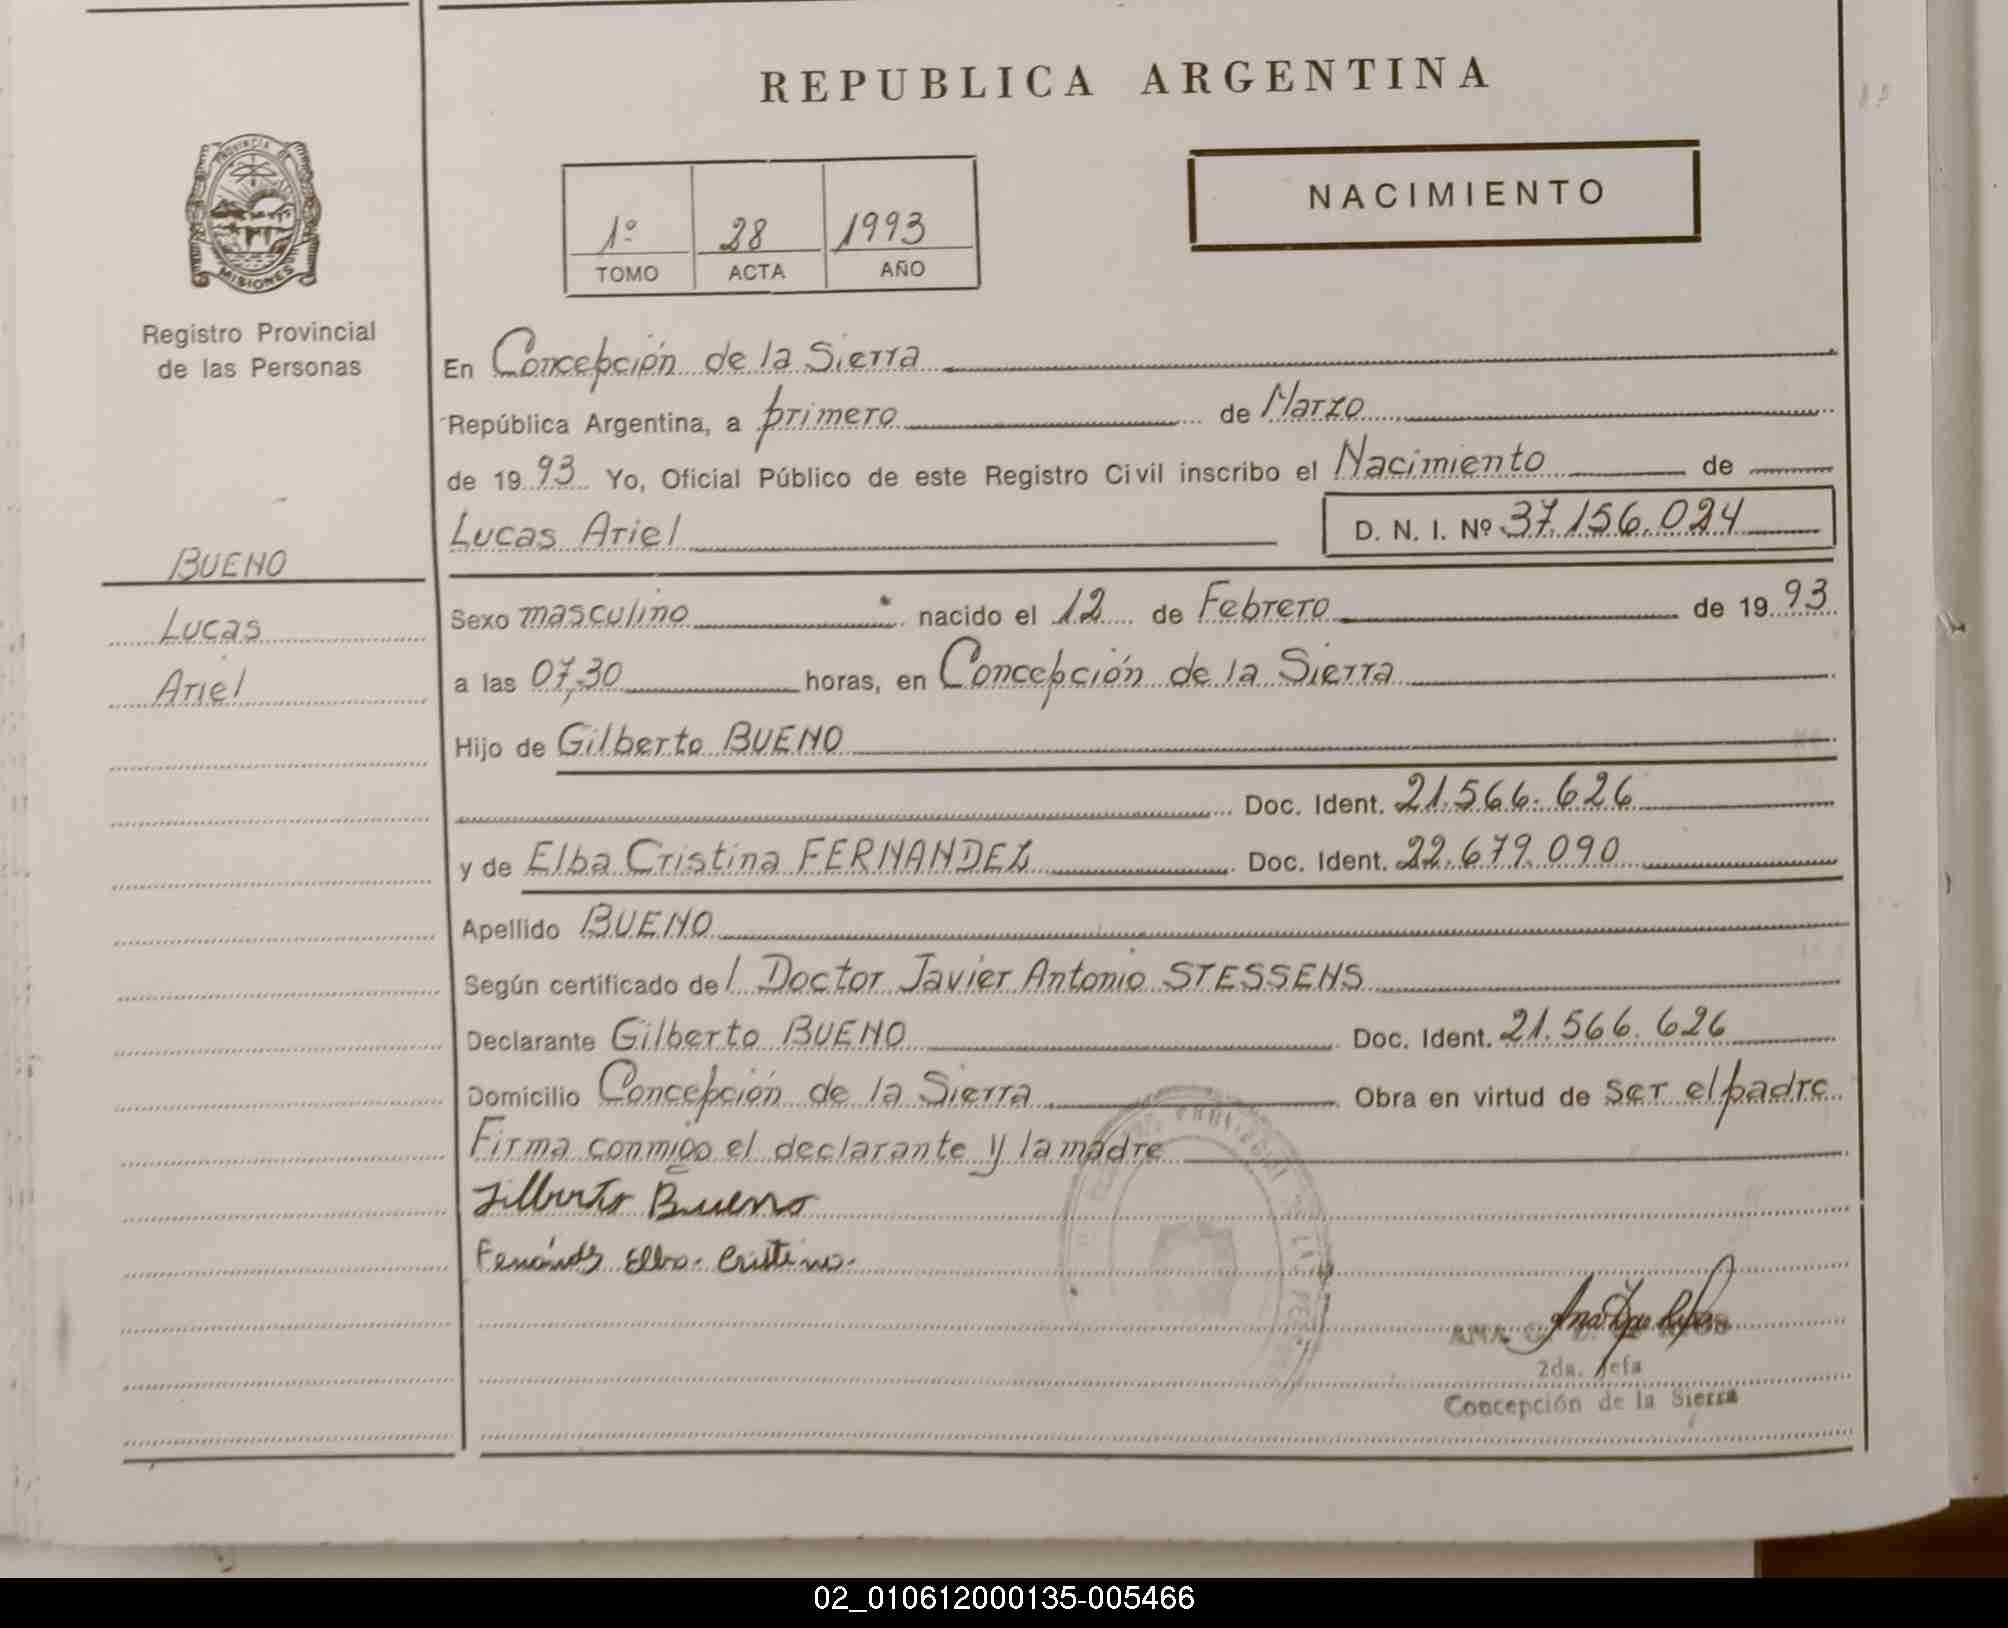 REPUBLICA ARGENTINA
NACIMIENTO
1º 28 1993
TOMO ACTA AÑO
PROVINCIA DE
MISIONES
Registro Provincial
de las Personas
BUENO
Lucas
Ariel
En Concepción de la Sierra
República Argentina, a primero de Marzo
de 1993 Yo, Oficial Público de este Registro Civil inscribo el Nacimiento de
Lucas Ariel D. N. I. Nº 37.156.024
Sexo masculino nacido el 12 de Febrero de 1993
a las 07,30 horas, en Concepción de la Sierra
Hijo de Gilberto BUENO
Doc. Ident. 21.566.626
y de Elba Cristina FERNANDEZ Doc. Ident. 22.679.090
Apellido BUENO
Según certificado del Doctor Javier Antonio STESSENS
Declarante Gilberto BUENO Doc. Ident. 21.566.626
Domicilio Concepción de la Sierra Obra en virtud de ser el padre
Firma conmigo el declarante y la madre
Gilberto Bueno
Fernández Elba Cristina
ANA
2da. Jefa
Concepción de la Sierra
02_010612000135-005466